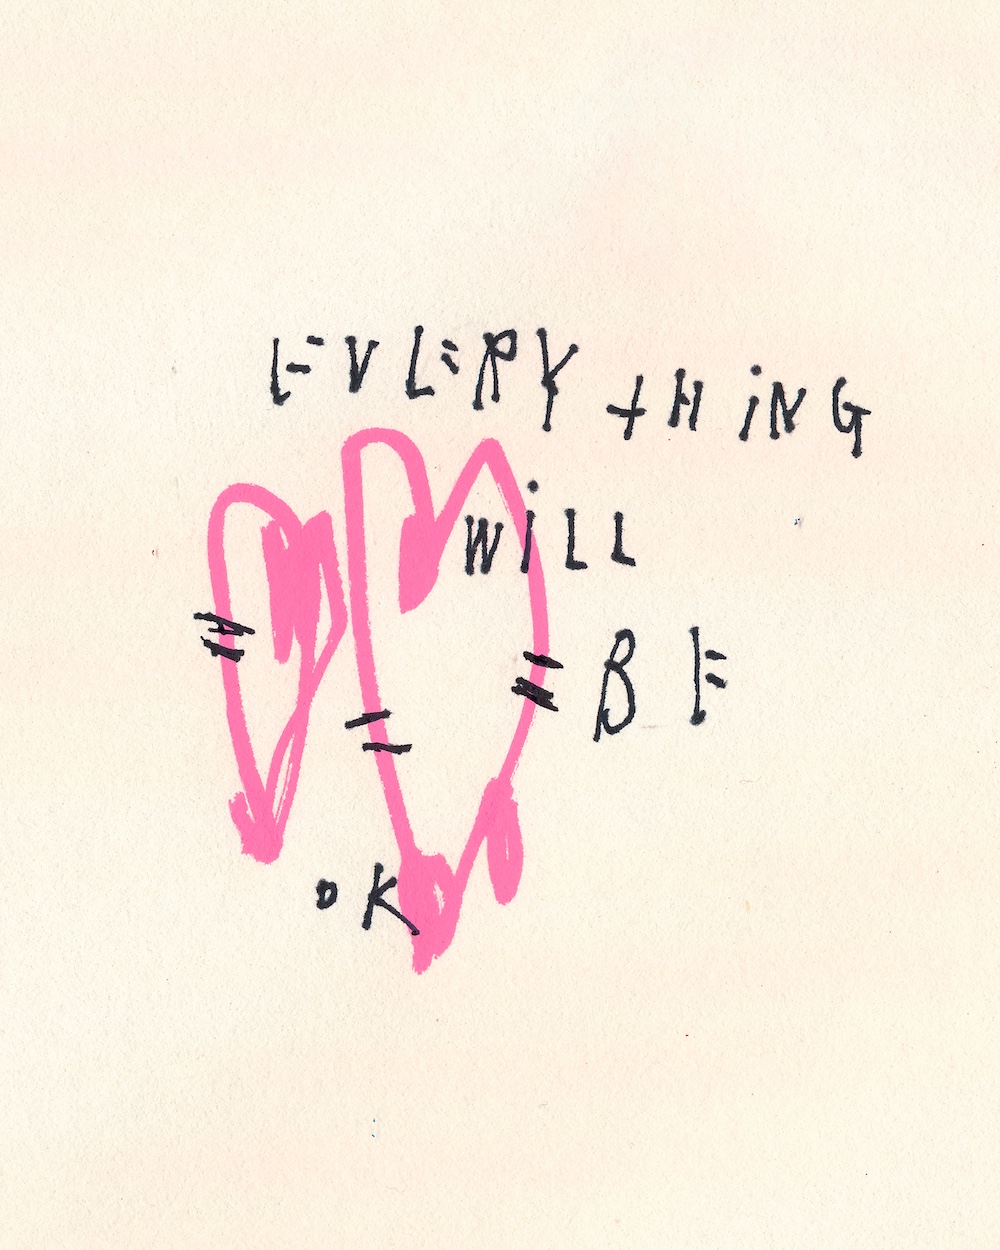 EVERYtHiNG
WiLL
BE
oK